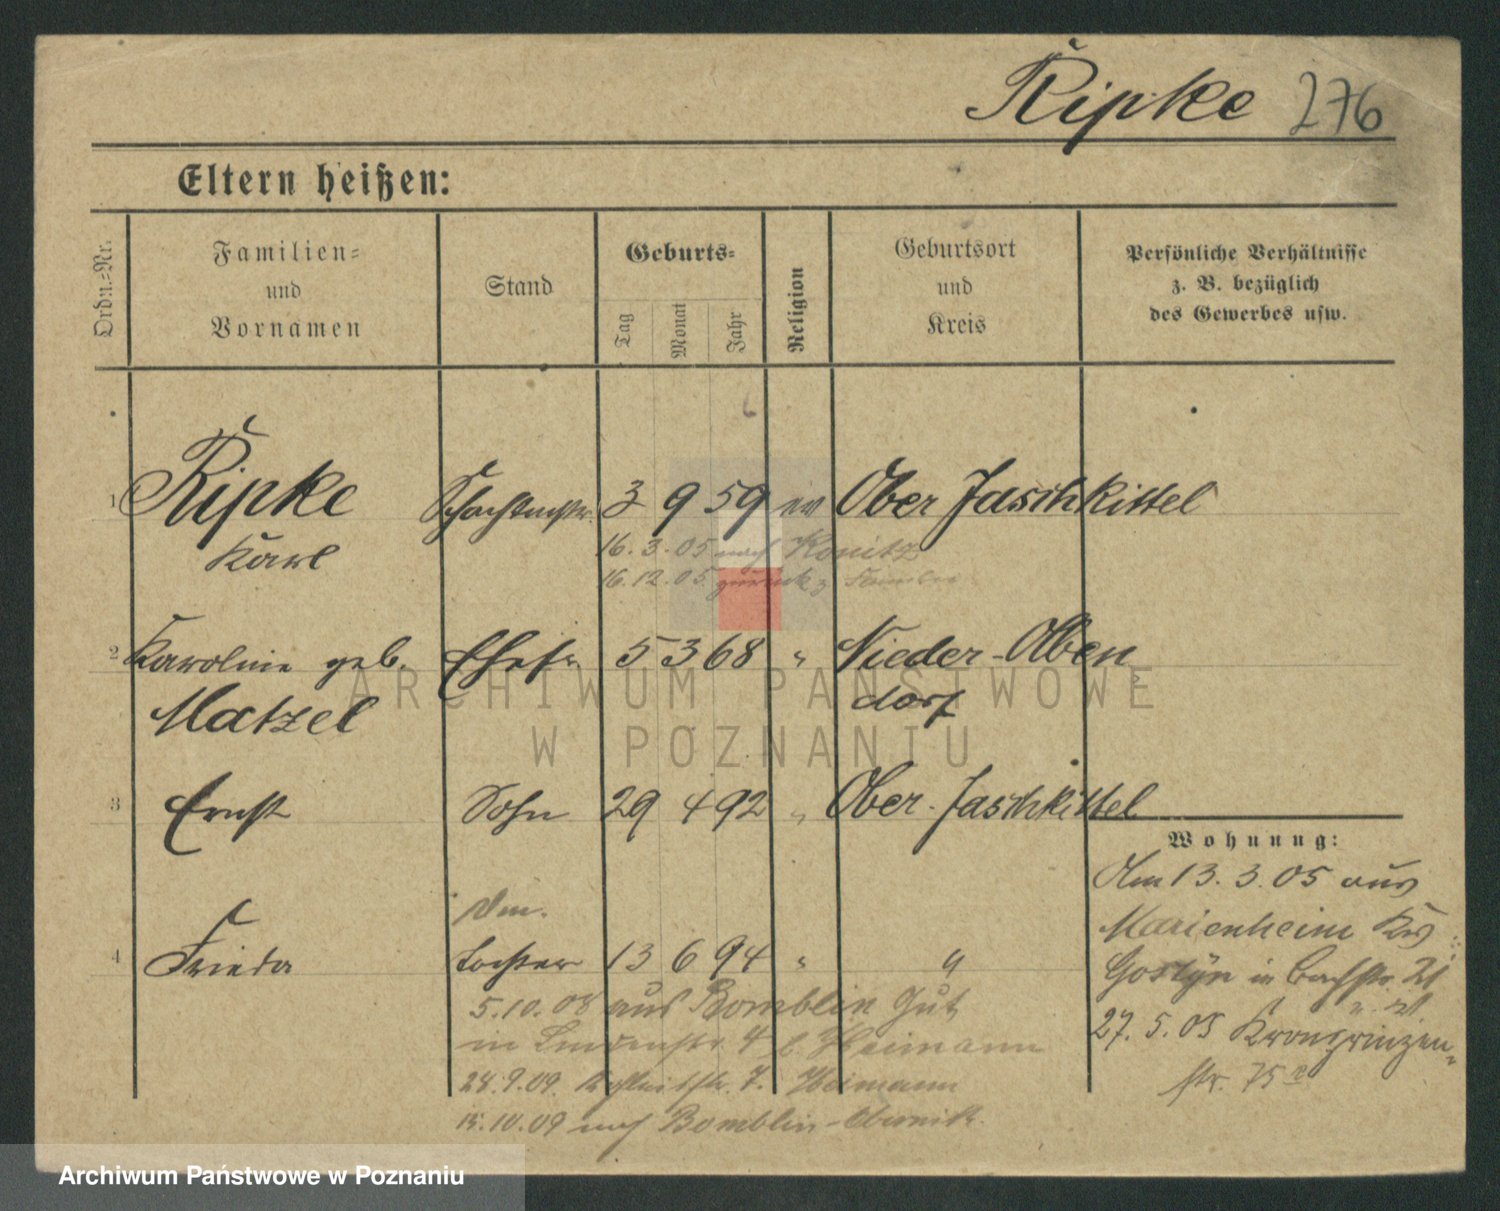 Ripke 276
Eltern heißen:
Ordn.-Nr.
Familien-
und
Vornamen
Stand
Geburts-
Tag
Monat
Jahr
Religion
Geburtsort
und
Kreis
Persönliche Verhältnisse
z. B. bezüglich
des Gewerbes usw.
1 Ripke Schachtmstr. 3 9 59 ev Ober Jaschkittel
Karl
16. 3. 05 nach Konitz
16. 12. 05 zurück z. Familie
2 Karoline geb. Ehefr. 5 3 68 " Nieder-Alben
Matzel dorf
3 Ernst Sohn 29 4 92 " Ober-Jaschkittel
4 Frieda Tochter 13 6 94 " "
5.10.08 aus Bomblin Gut
in Lindenstr. 4 b. Heimann
24.9.09. 7. Heimann
15.10.09 nach Bomblin-Obornik.
Wohnung:
Am 13. 3. 05 aus
Marienheim Krs
Gostyn in Bachstr. 21
27. 5. 05 Kronprinzen-
str. 75
ARCHIWUM PAŃSTWOWE
W POZNANIU
Archiwum Państwowe w Poznaniu